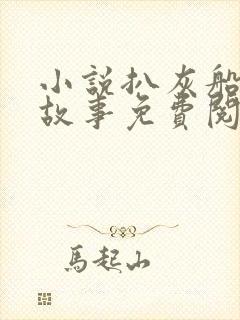 小說扒灰船
故事免費閱
馬起山